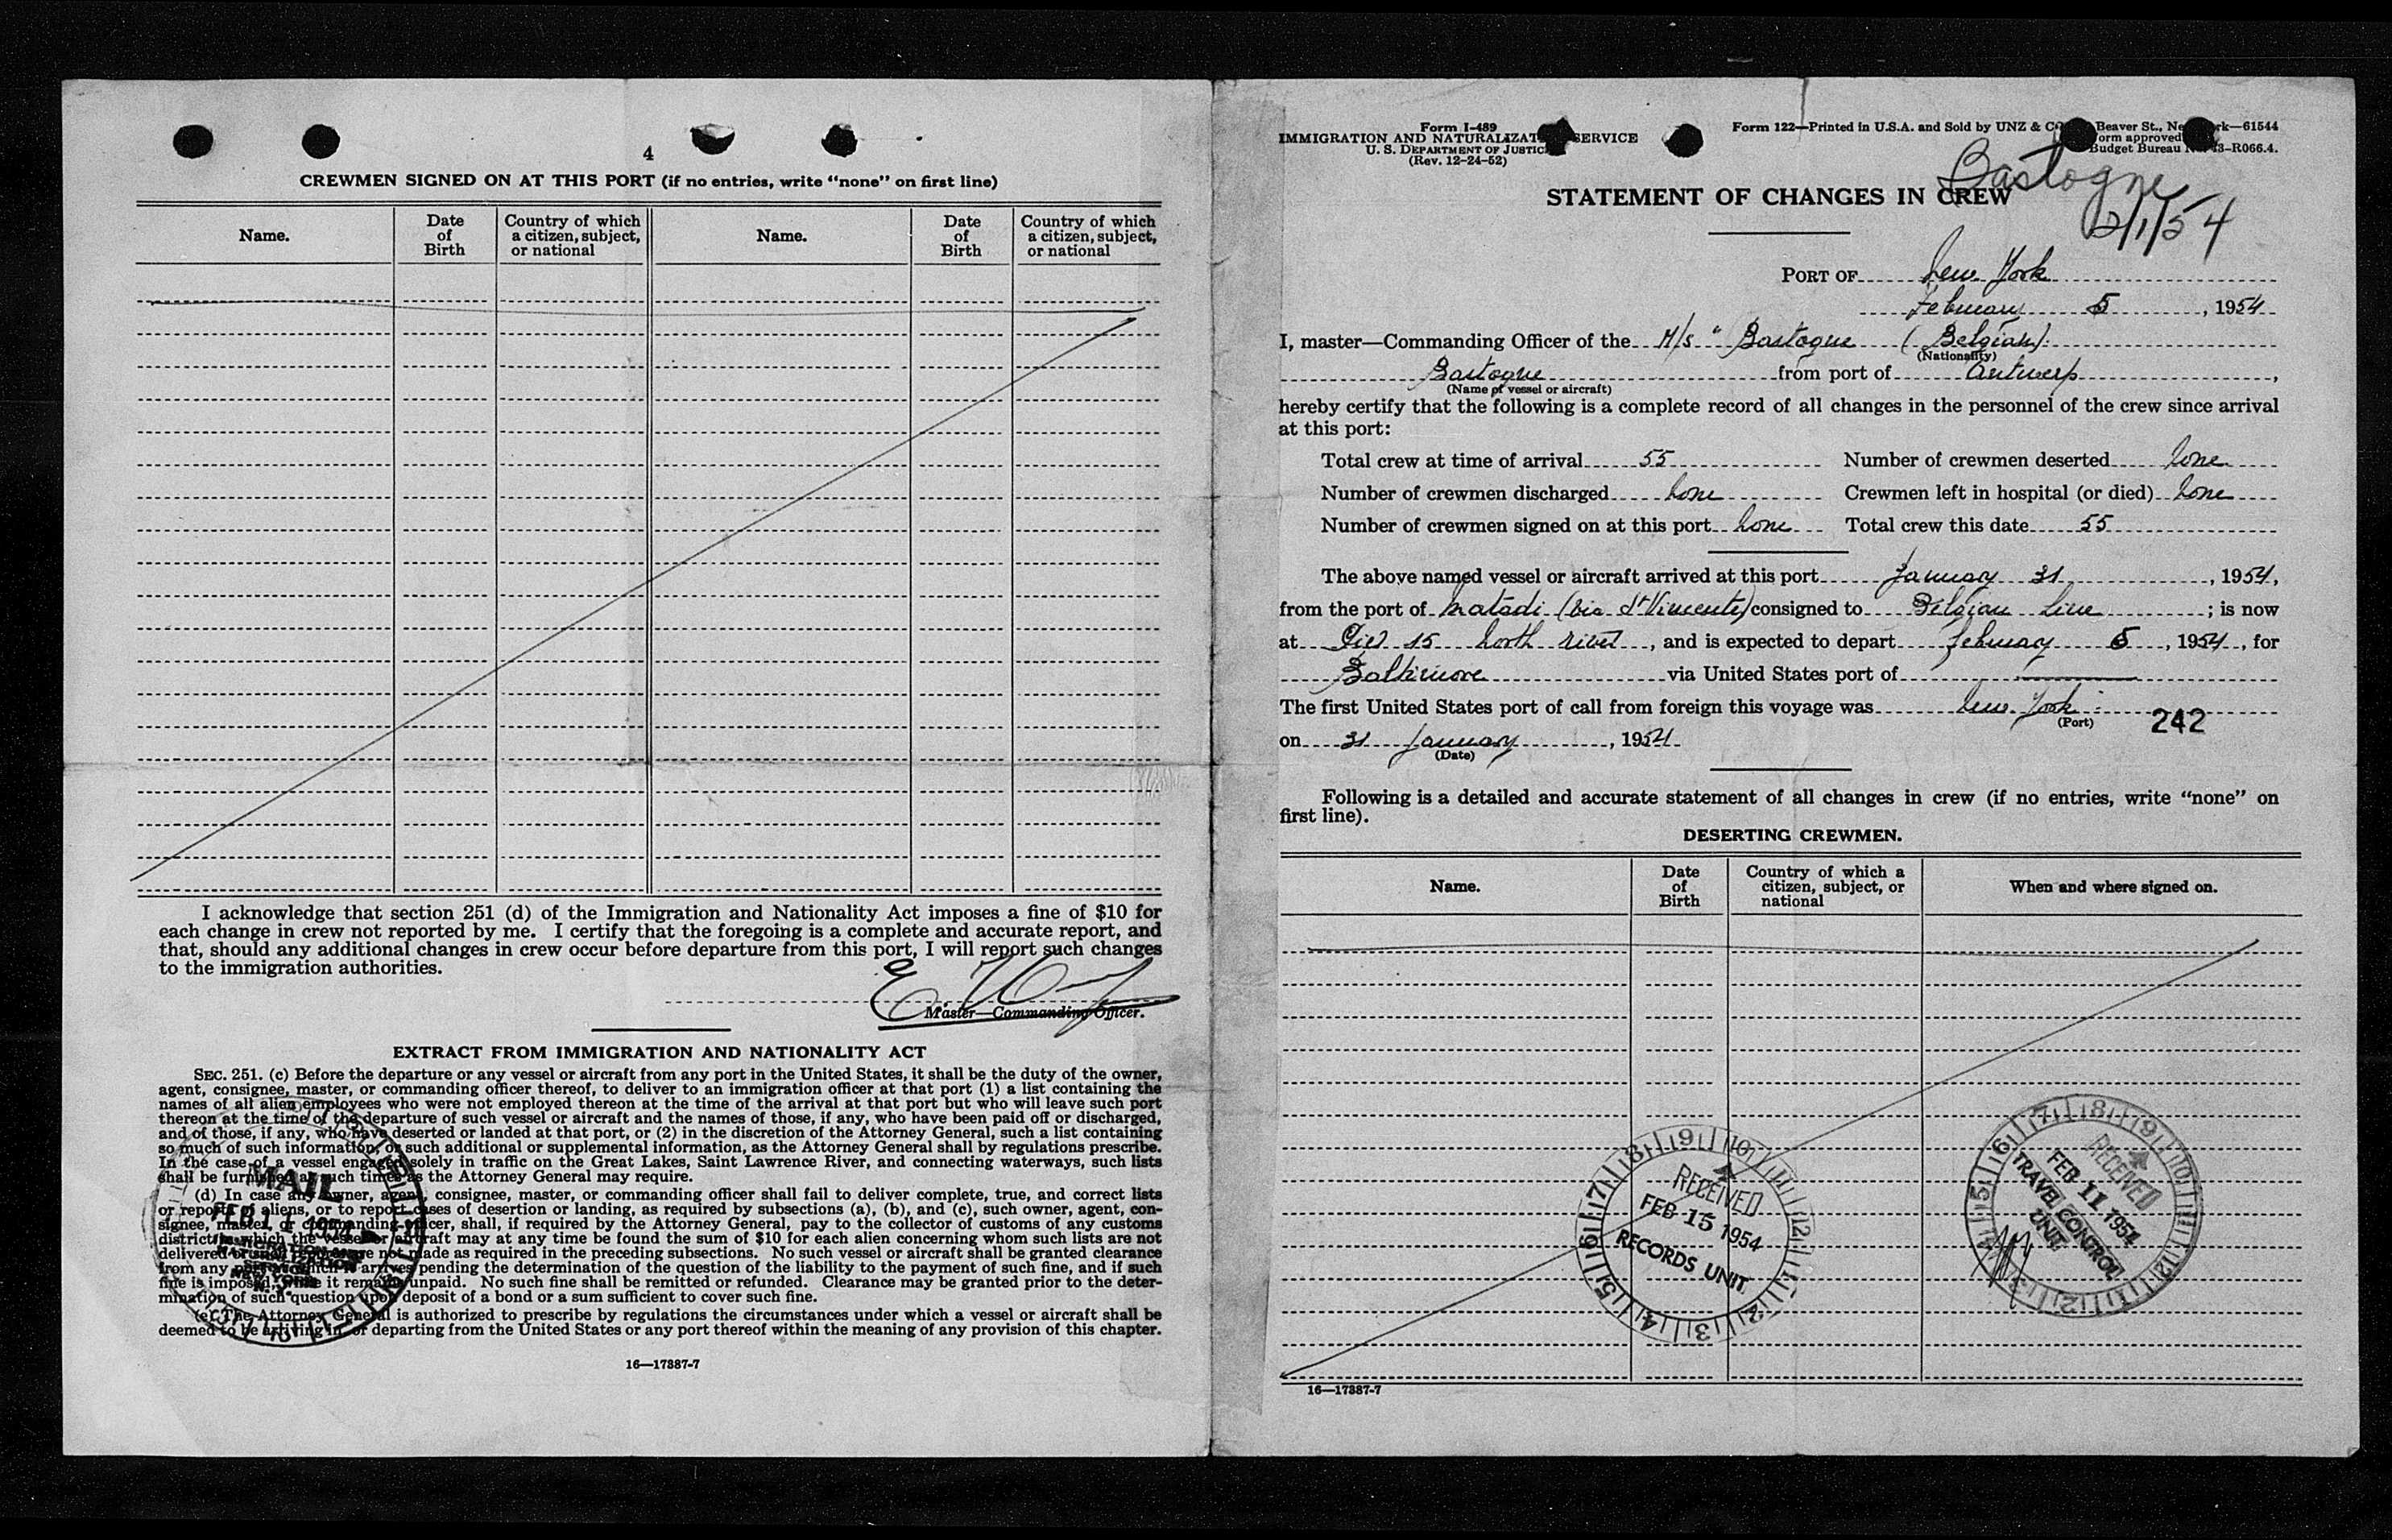 4
CREWMEN SIGNED ON AT THIS PORT (if no entries, write “none” on first line)
Name. Date of Birth Country of which a citizen, subject, or national Name. Date of Birth Country of which a citizen, subject, or national
I acknowledge that section 251 (d) of the Immigration and Nationality Act imposes a fine of $10 for
each change in crew not reported by me. I certify that the foregoing is a complete and accurate report, and
that, should any additional changes in crew occur before departure from this port, I will report such changes
to the immigration authorities.
Master—Commanding Officer.
EXTRACT FROM IMMIGRATION AND NATIONALITY ACT
SEC. 251. (c) Before the departure or any vessel or aircraft from any port in the United States, it shall be the duty of the owner,
agent, consignee, master, or commanding officer thereof, to deliver to an immigration officer at that port (1) a list containing the
names of all alien employees who were not employed thereon at the time of the arrival at that port but who will leave such port
thereon at the time of the departure of such vessel or aircraft and the names of those, if any, who have been paid off or discharged,
and of those, if any, who have deserted or landed at that port, or (2) in the discretion of the Attorney General, such a list containing
so much of such information, or such additional or supplemental information, as the Attorney General shall by regulations prescribe.
In the case of a vessel engaged solely in traffic on the Great Lakes, Saint Lawrence River, and connecting waterways, such lists
shall be furnished at such times as the Attorney General may require.
(d) In case any owner, agent, consignee, master, or commanding officer shall fail to deliver complete, true, and correct lists
or reports of aliens, or to report cases of desertion or landing, as required by subsections (a), (b), and (c), such owner, agent, con-
signee, master, or commanding officer, shall, if required by the Attorney General, pay to the collector of customs of any customs
district in which the vessel or aircraft may at any time be found the sum of $10 for each alien concerning whom such lists are not
delivered or such reports are not made as required in the preceding subsections. No such vessel or aircraft shall be granted clearance
from any port at which it arrives pending the determination of the question of the liability to the payment of such fine, and if such
fine is imposed, while it remains unpaid. No such fine shall be remitted or refunded. Clearance may be granted prior to the deter-
mination of such question upon deposit of a bond or a sum sufficient to cover such fine.
(e) The Attorney General is authorized to prescribe by regulations the circumstances under which a vessel or aircraft shall be
deemed to be arriving in or departing from the United States or any port thereof within the meaning of any provision of this chapter.
MAIL
FEB 11 1954
16—17387-7
Form I-489
IMMIGRATION AND NATURALIZATION SERVICE
U. S. DEPARTMENT OF JUSTICE
(Rev. 12-24-52)
Form 122—Printed in U.S.A. and Sold by UNZ & Co Beaver St., New York—61544
Form approved
Budget Bureau No. 43-R066.4.
Bastogne
2/1/54
STATEMENT OF CHANGES IN CREW
PORT OF New York
February 5, 1954
I, master—Commanding Officer of the M/s “ Bastogne ( Belgian).
(Nationality)
Bastogne from port of Antwerp,
(Name of vessel or aircraft)
hereby certify that the following is a complete record of all changes in the personnel of the crew since arrival
at this port:
Total crew at time of arrival 55 Number of crewmen deserted None
Number of crewmen discharged None Crewmen left in hospital (or died) None
Number of crewmen signed on at this port None Total crew this date 55
The above named vessel or aircraft arrived at this port January 31, 1954,
from the port of Matadi (via St Vincente) consigned to Belgian Line; is now
at Pier 15 North River, and is expected to depart February 5, 1954, for
Baltimore via United States port of
The first United States port of call from foreign this voyage was New York
(Port)
242
on 31 January, 1954
(Date)
Following is a detailed and accurate statement of all changes in crew (if no entries, write “none” on
first line).
DESERTING CREWMEN.
Name. Date of Birth Country of which a citizen, subject, or national When and where signed on.
RECEIVED
FEB 15 1954
RECORDS UNIT
RECEIVED
FEB 11 1954
TRAVEL CONTROL
UNIT
16—17387-7